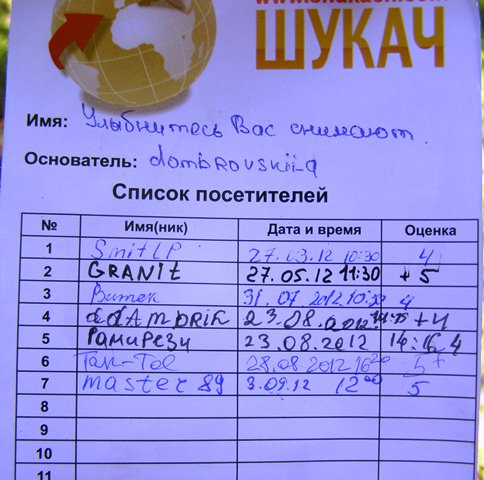 ШУКАЧ
Имя: Улыбнитесь Вас снимают.
Основатель: dombrovskii_a
Список посетителей
№ Имя(ник) Дата и время Оценка
1 SmitLP 27.03.12 10:30 4
2 GRANIT 27.05.12 11:30 + 5
3 Витек 31.07.2012 4
4 23.08.2012 +4
5 Рамирези 23.08.2012 14:16 4
6 Tak-Tol 28.08.2012 16 20 5+
7 master 89 3.09.12 12 00 5
8
9
10
11